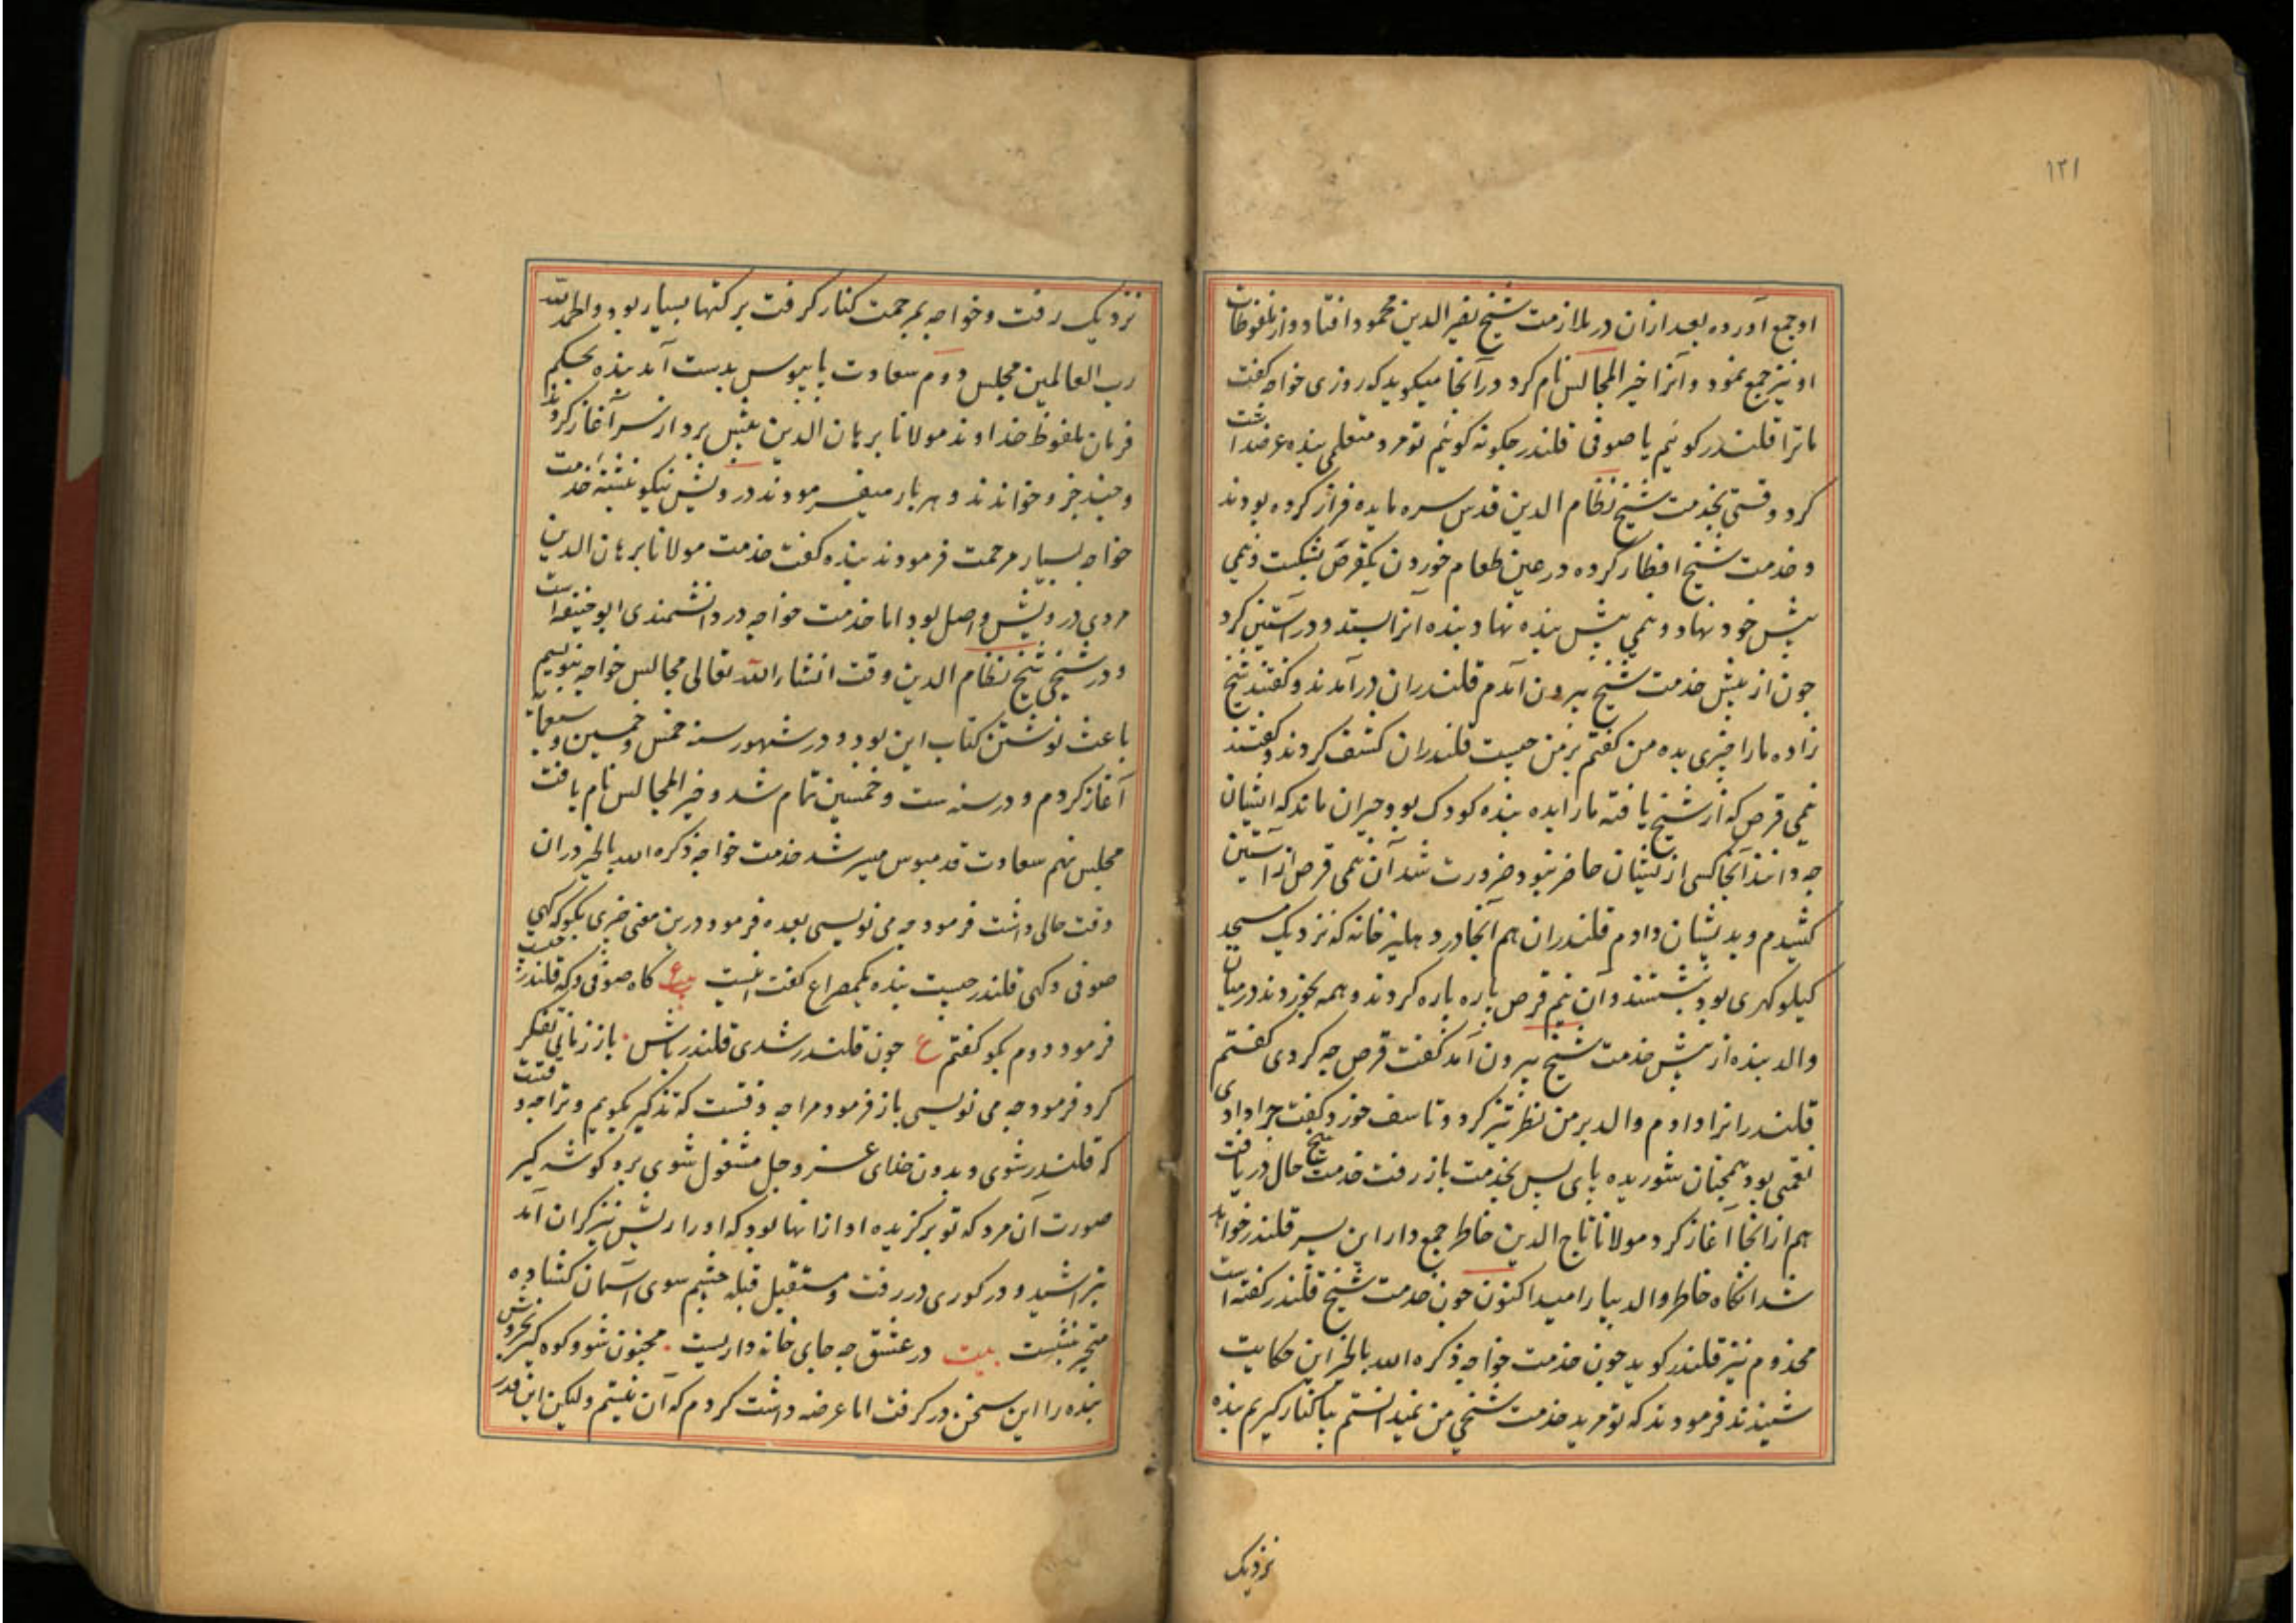 ۱۳۱
او جمع آورده بعد ازان در ملازمت شیخ نصیر الدین محمود افتاد و از ملفوظات
او نیز جمع نمود و آنرا خیر المجالس نام کرد در آنجا میکوید که روزی خواجه کفت
ما ترا قلندر کوئیم یا صوفی قلندر چکونه کوئیم تو مرد متعلمی بنده عرضداشت
کرد وقتی بخدمت شیخ نظام الدین قدس سره مایده فراز کرده بودند
و خدمت شیخ افطار کرده در عین طعام خوردن یکقرص بشکست و نیمی
پیش خود نهاد و نیمی پیش بنده نهاد بنده آنرا بستد و در آستین کرد
چون از پیش خدمت شیخ بیرون آمدم قلندران در آمدند و کفتند شیخ
زاده ما را چیزی بده من کفتم بر من چیست قلندران کشف کردند و کفتند
نیمی قرص که از شیخ یافته ما را بده بنده کودک بود حیران ماند که ایشان
چه دانند آنجا کسی از ایشان حاضر نبود ضرورت شد آن نیمی قرص از آستین
کشیدم و بدیشان دادم قلندران هم آنجا در دهلیز خانه که نزدیک مسجد
کیلوکهری بود بنشستند و آن نیم قرص پاره پاره کردند و همه بخوردند درمیان
والد بنده از پیش خدمت شیخ بیرون آمد کفت قرص چه کردی کفتم
قلندرانرا دادم والد بر من نظر تیز کرد و تاسف خورد و کفت چرا دادی
نعمتی بود همچنان شوریده پای پس بخدمت باز رفت خدمت شیخ حال دریافت
هم از انجا آغاز کرد مولانا تاج الدین خاطر جمع دار این پسر قلندر خواهد
شد انکاه خاطر والد بیارامید اکنون چون خدمت شیخ قلندر کفته است
مخدوم نیز قلندر کوید چون خدمت خواجه ذکره الله بالخیر این حکایت
شنیدند فرمودند که تو مرید خدمت شیخی من نمیدانستم بیا کنار کیریم بنده
نزدیک
نزدیک رفت و خواجه بمرحمت کنار کرفت برکتها بسیار بود والحمد لله
رب العالمین مجلس دوم سعادت پایبوس بدست آمد بنده بحکم
فرمان ملفوظ خداوند مولانا برهان الدین پیش برد از سر آغاز کردند
و چند جزو خواندند و هر بار میفرمودند درویش نیکو نبشته خدمت
خواجه بسیار مرحمت فرمودند بنده کفت خدمت مولانا برهان الدین
مردی درویش واصل بود اما خدمت خواجه در دانشمندی ابو حنیفه است
و در شیخی شیخ نظام الدین وقت انشاء الله تعالی مجالس خواجه بنویسم
باعث نوشتن کتاب این بود و در شهور سنه خمس و خمسین و سبعمأیة
آغاز کردم و در سنه ست و خمسین تمام شد و خیر المجالس نام یافت
مجلس نهم سعادت قدمبوس میسر شد خدمت خواجه ذکره الله بالخیر دران
وقت حالی داشت فرمود چه می نویسی بعده فرمود درین معنی چیزی بکو که کهی
صوفی و کهی قلندر چیست بنده یکمصراع کفت اینست ع کاه صوفی و که قلندر چیست
فرمود دوم بکو کفتم ع چون قلندر شدی قلندر باش. باز زمانی تفکر
کرد فرمود چه می نویسی باز فرمود مرا چه وقتست که تذکیر بکویم و ترا چه وقتست
که قلندر شوی و بدون خدای عز و جل مشغول شوی برو کوشه کیر
صورت آن مرد که تو برکزیده او ازانها بود که او را ریش نیز کران آمد
بتراشید و در کوری در رفت و مستقبل قبله چشم سوی آسمان کشاده
متحیر بنشست بیت در عشق چه جای خانه داریست. مجنون شو و کوه کیر بخروش
بنده را این سخن در کرفت اما عرضه داشت کردم که آن نیستم ولیکن این قدر